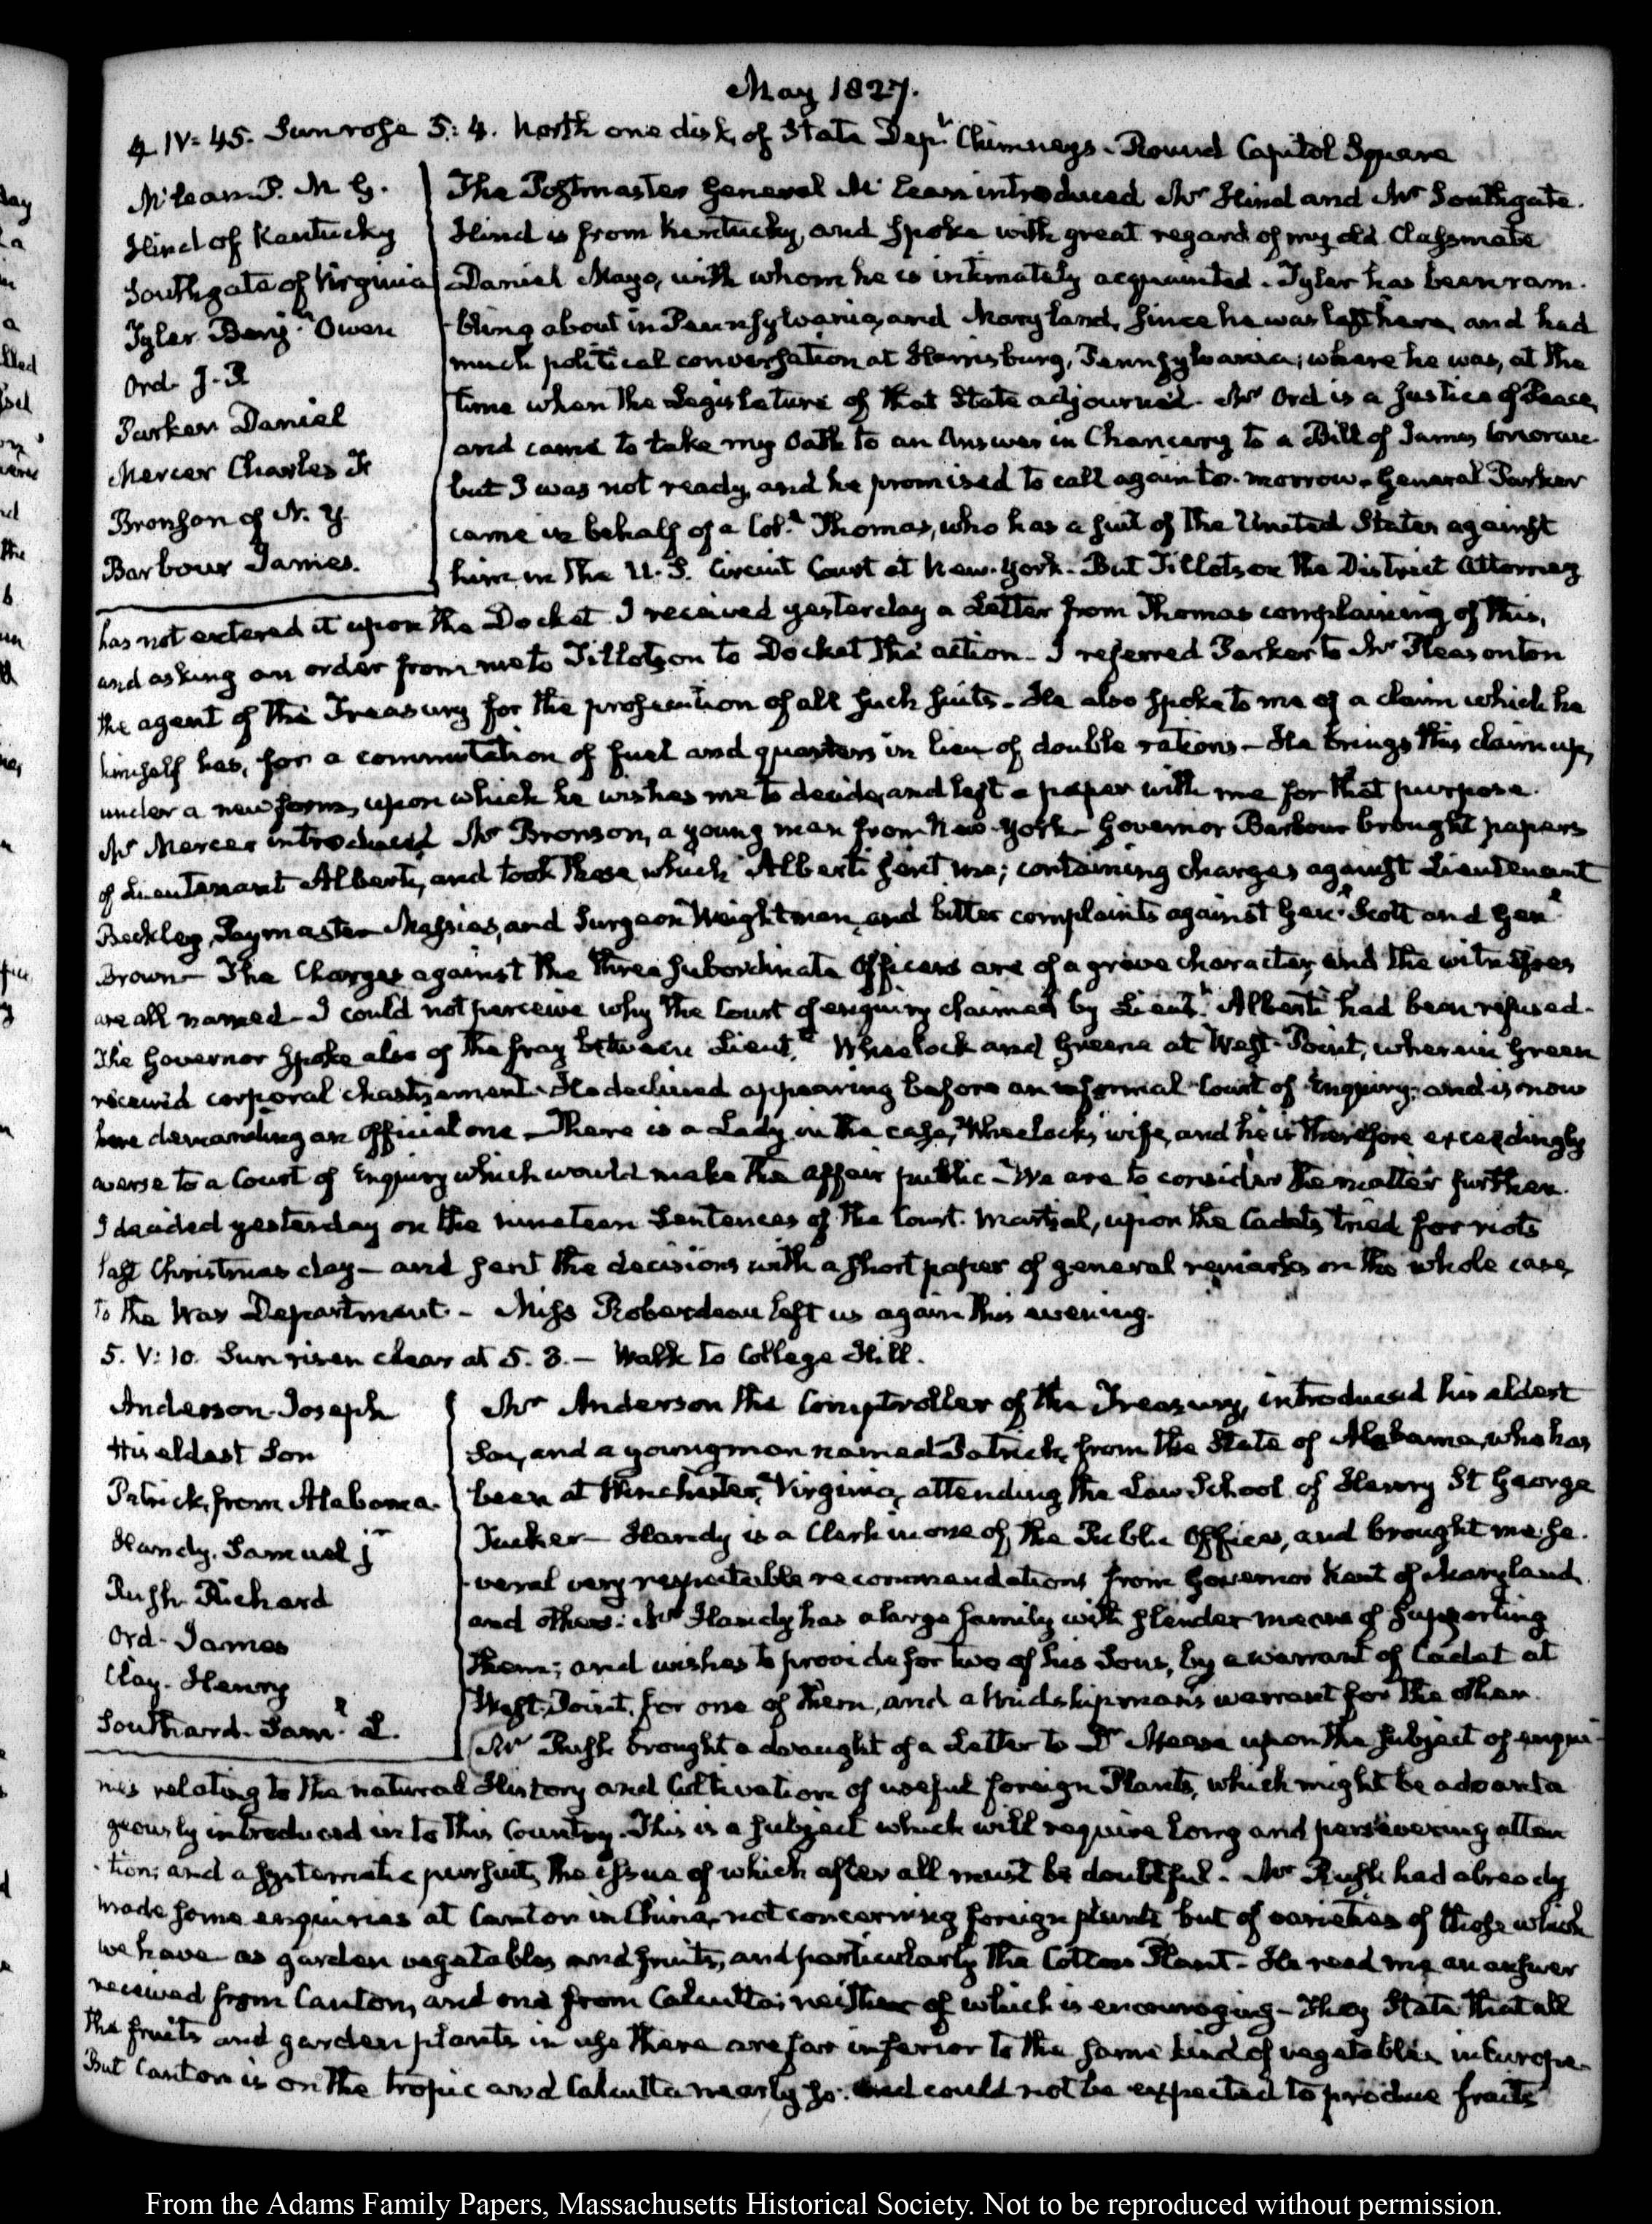 May 1827.
4. IV: 45. Sun rose 5: 4. North one disk, of State Dept. Chimneys. Round Capitol Square
McLean P. M G.
Hind of Kentucky
Southgate of Virginia
Tyler Benjn. Owen
Ord. J. R
Parker Daniel
Mercer Charles F
Bronson of N. Y.
Barbour James.
The Postmaster General McLean introduced Mr Hind and Mr Southgate.
Hind is from Kentucky, and spoke with great regard of my old Classmate
Daniel Mayo, with whom he is intimately acquainted. Tyler has been ram-
-bling about in Pennsylvania, and Maryland, since he was last here, and had
much political conversation at Harrisburg, Pennsylvania; where he was, at the
time when the Legislature of that State adjourned. Mr Ord is a Justice of Peace,
and came to take my Oath to an Answer in Chancery to a Bill of James
but I was not ready, and he promised to call again to-morrow. General Parker
came in behalf of a Coll. Thomas, who has a suit of the United States against
him in the U. S. Circuit Court at New-York. But Tillotson the District Attorney
has not entered it upon the Docket. I received yesterday a Letter from Thomas complaining of this,
and asking an order from me to Tillotson to Docket the action. I referred Parker to Mr Pleasonton
the agent of the Treasury for the prosecution of all such suits. He also spoke to me of a claim which he
himself has, for a commutation of fuel and quarters in lieu of double rations. He brings this claim up,
under a new form, upon which he wishes me to decide, and left a paper with me for that purpose.
Mr Mercer introduced Mr Bronson, a young man from New-York. Governor Barbour brought papers
of Lieutenant Alberti, and took those which Alberti sent me; containing charges against Lieutenant
Beckley, Paymaster Massias, and Surgeon Weightman, and bitter complaints against Genl. Scott and Genl.
Brown. The Charges against the three subordinate Officers are of a grave character, and the witnesses
are all named. I could not perceive why the Court of enquiry claimed by Lieutt. Alberti had been refused.
The Governor spoke also of the fray between Lieutts. Wheelock and Greene at West-Point, wherein Green
received corporal chastisement. He declined appearing before an informal Court of Enquiry; and is now
here demanding an Official one. There is a Lady in the case, Wheelock's wife, and he is therefore exceedingly
averse to a Court of Enquiry which would make the affair public. We are to consider the matter further.
I decided yesterday on the nineteen Sentences of the Court-Martial, upon the Cadets tried for riots
last Christmas day — and sent the decisions with a short paper of general remarks on the whole case,
to the War Department. — Miss Roberdeau left us again this evening.
5. V: 10. Sun risen clear at 5. 3. — Walk to College Hill.
Anderson Joseph
His eldest Son
Patrick, from Alabama.
Handy. Samuel J
Rush Richard
Ord. James
Clay. Henry
Southard. Saml. L.
Mr Anderson the Comptroller of the Treasury, introduced his eldest
Son, and a young man named Patrick, from the State of Alabama, who has
been at Winchester, Virginia, attending the Law School of Henry St George
Tucker — Handy is a Clerk in one of the Public Offices, and brought me se-
-veral very respectable recommendations from Governor Kent of Maryland
and others. Mr Handy has a large family with slender means of supporting
them; and wishes to provide for two of his Sons, by a warrant of Cadet at
West-Point, for one of them, and a Midshipman's warrant for the other.
Mr Rush brought a draught of a Letter to Dr Mease upon the subject of enqui-
ries relating to the natural History and Cultivation of useful foreign Plants, which might be advanta
geously introduced into this Country. This is a subject which will require long and persevering atten
-tion; and a systematic pursuit, the issue of which after all must be doubtful. Mr Rush had already
made some enquiries at Canton in China, not concerning foreign plants but of varieties of those which
we have as garden vegetables and fruits, and particularly the Cotton Plant. He read me an answer
received from Canton, and one from Calcutta; neither of which is encouraging. They State that all
the fruits and garden plants in use there are far inferior to the same kind of vegetables in Europe.
But Canton is on the tropic and Calcutta nearly so. and could not be expected to produce fruits
From the Adams Family Papers, Massachusetts Historical Society. Not to be reproduced without permission.